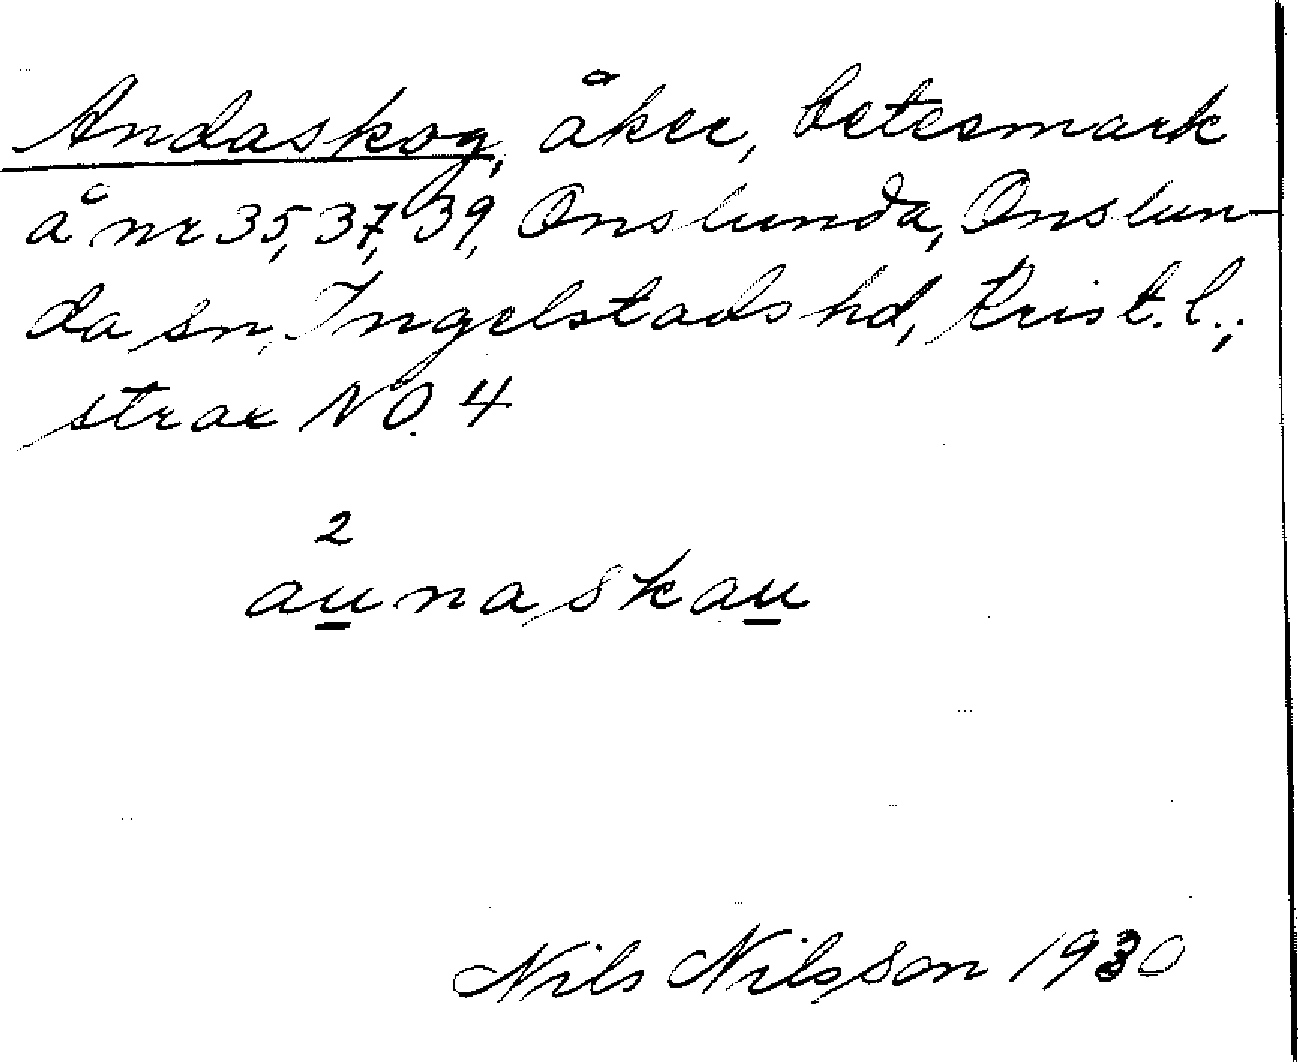 Andaskog, åker, betesmark
å nr 35, 37, 39, Onslunda, Onslun-
da sn, Ingelstads hd, Krist. l.;
strax NO. 4
2
aunaskau
Nils Nilsson 1930